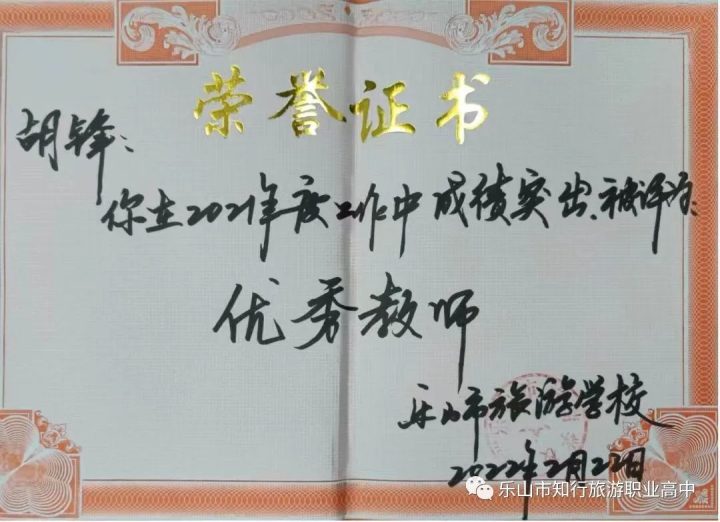 荣誉证书
胡锋：
你在2021年度工作中成绩突出、被评为：
优秀教师
乐山市旅游学校
2022年2月22日
乐山市知行旅游职业高中